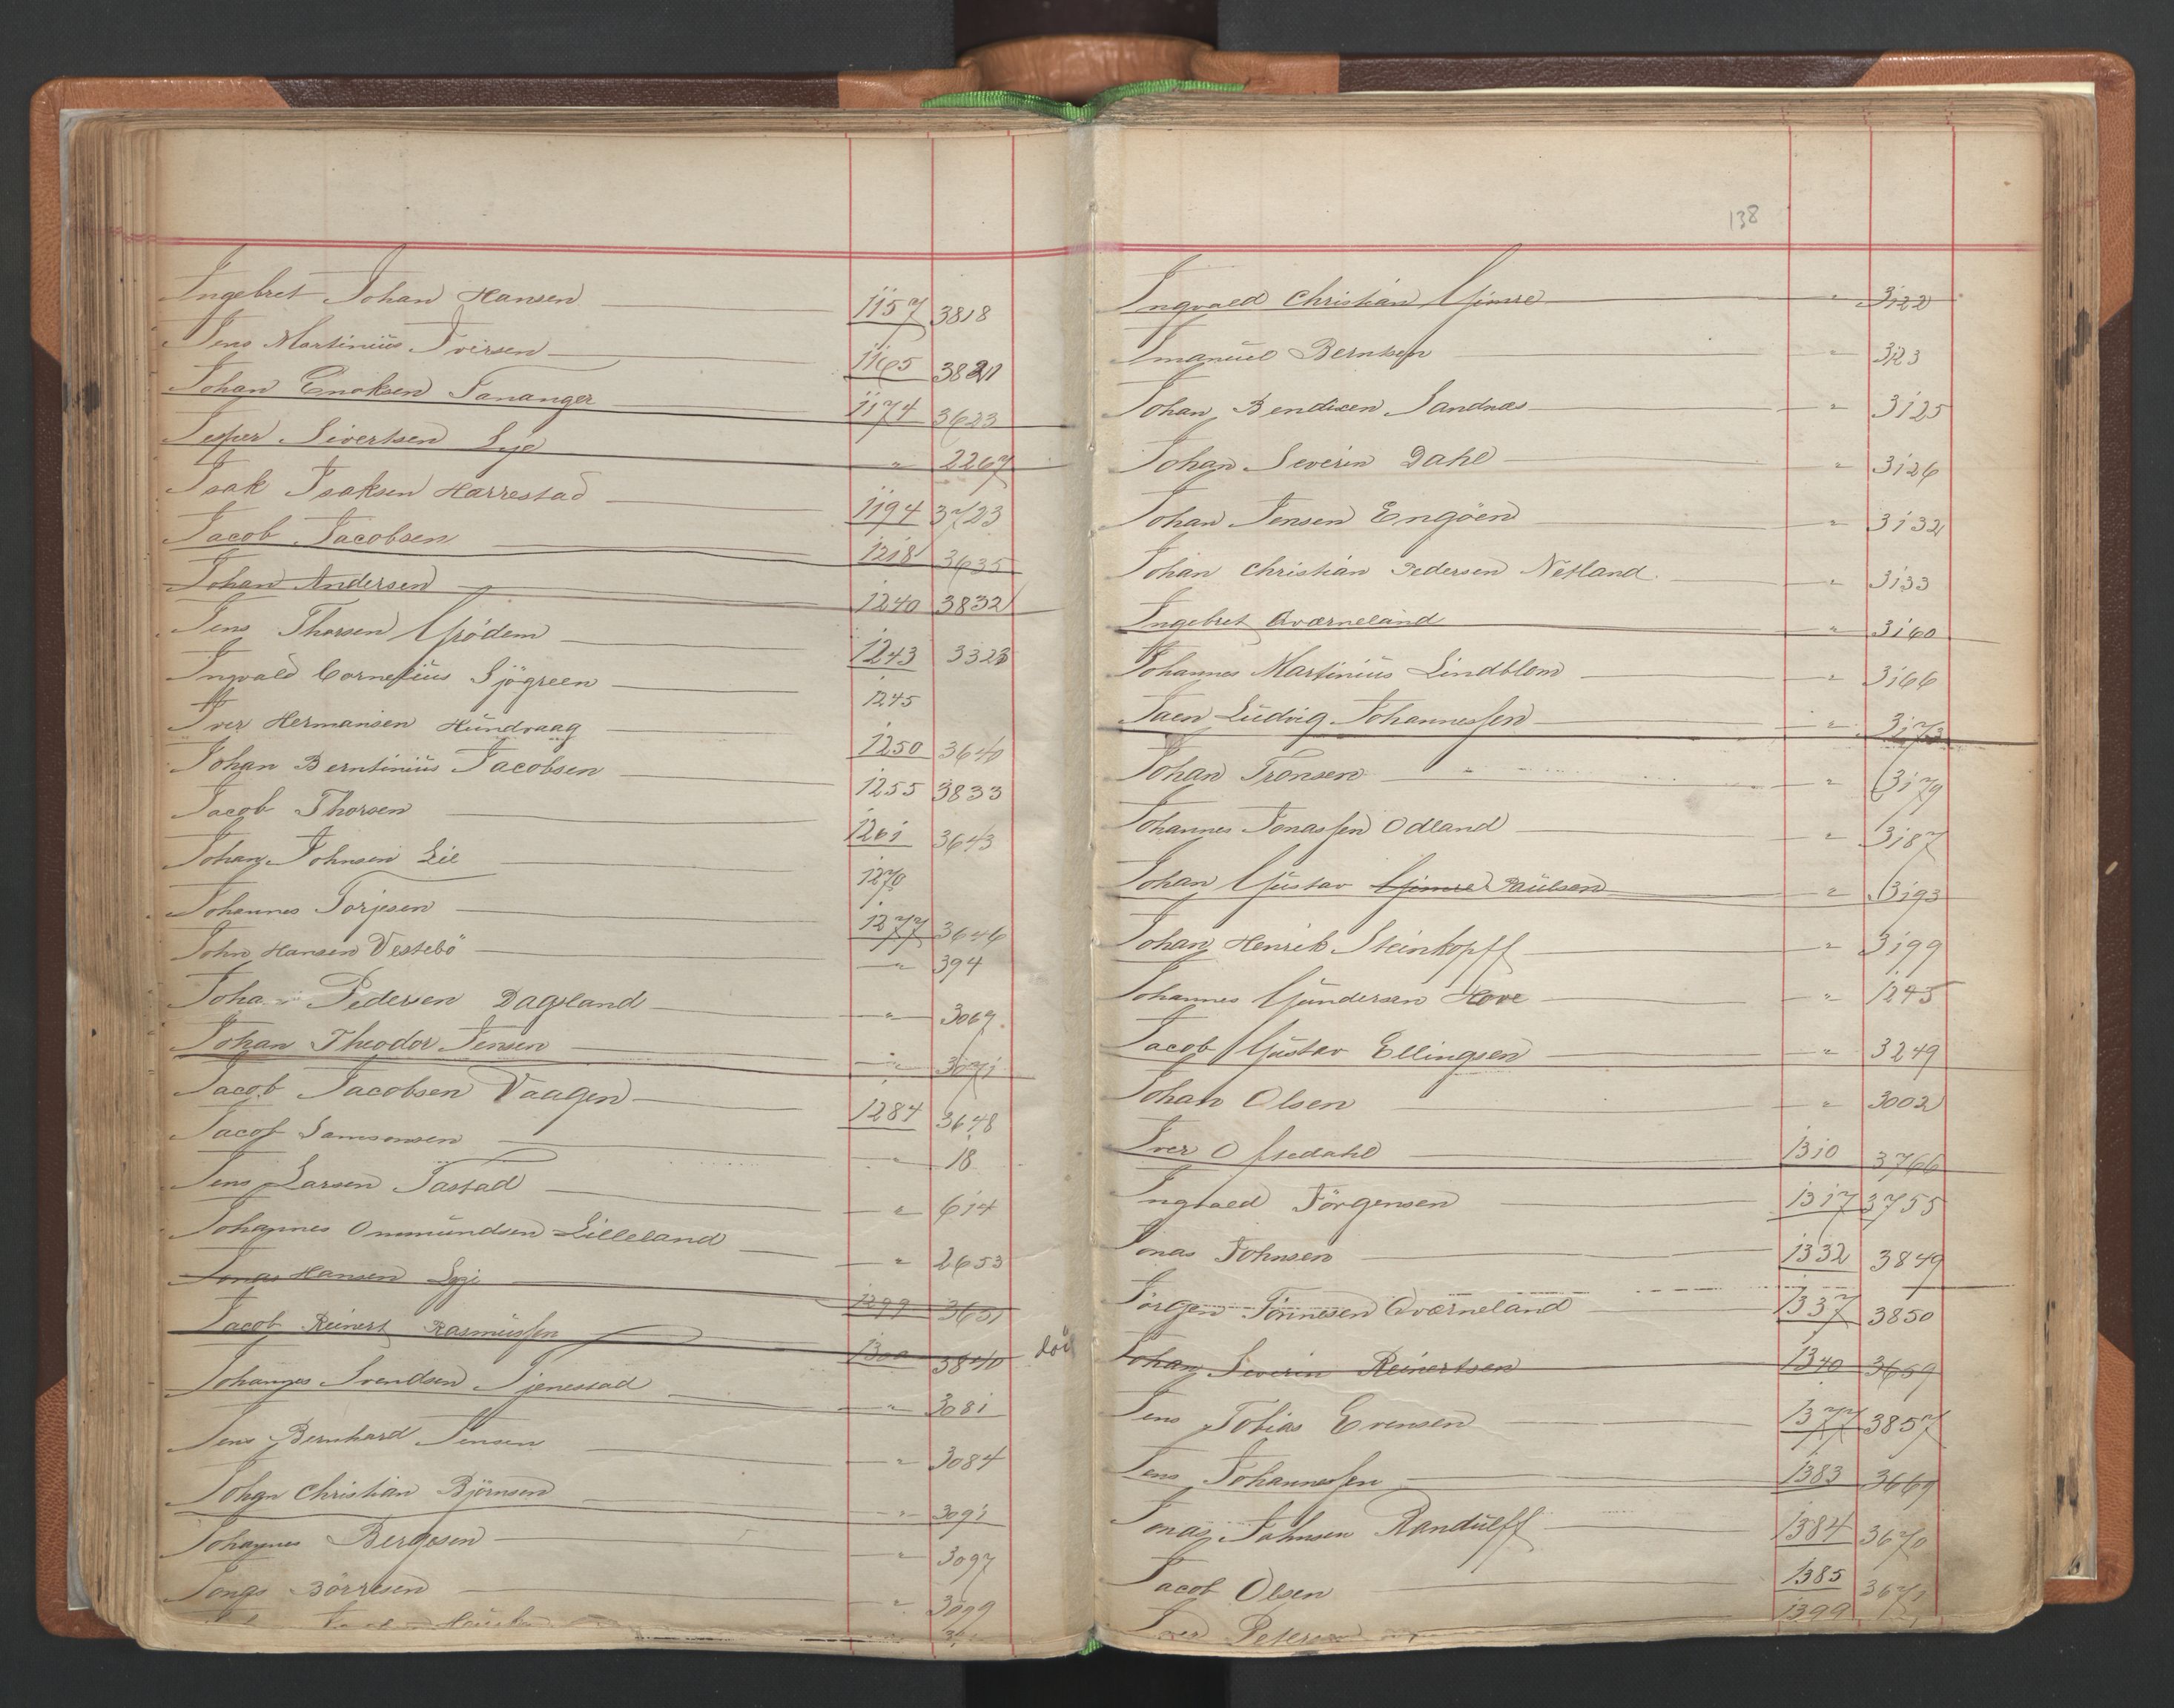 Ingebret Johan Hansen 1157 3818
Jens Martinius Iversen 1165 3821
Johan Enoksen Tananger 1174 3623
Jesper Sivertsen Lye " 2267
Isak Isaksen Harrestad 1194 3723
Jacob Jacobsen 1218 3635
Johan Andersen 1240 3832
Jens Thorsen Grödem 1243 3323
Ingvald Cornelius Sjögreen 1245
Iver Hermansen Hundvaag 1250 3640
Johan Berntinius Jacobsen 1255 3833
Jacob Thorsen 1261 3643
Johan Johnsen Lie 1270
Johannes Torjesen 1277 3646
John Hansen Vestebö " 394
Johan Pedersen Dagsland " 3069
Johan Theodor Jensen " 3071
Jacob Jacobsen Vaagen 1284 3648
Jacob Samsonsen " 18
Jens Larsen Tastad " 614
Johannes Ommundsen Lilleland " 2653
Jonas Hansen Lyje 1299 3651
Jacob Reinert Rasmussen 1300 3840
Johannes Svendsen Tjenestad " 3081
Jens Bernhard Jensen " 3084
Johan Christian Björnsen " 3091
Johannes Bergesen " 3097
Jonas Börresen " 3099
138
Ingvald Christian Gimre " 3122
Imanuel Berntsen " 3123
Johan Bendixen Sandnæs " 3125
Johan Severin Dahl " 3126
Johan Jensen Engöen " 3132
Johan Christian Pedersen Netland " 3133
Ingebret Qværneland " 3160
Johannes Martinius Lindblom " 3166
Jaen Ludvig Johannessen " 3173
Johan Tronsen " 3179
Johannes Jonassen Odland " 3187
Johan Gustav Gimre Paulsen " 3193
Johan Henrik Steinkopff " 3199
Johannes Gundersen Hove " 1245
Jacob Gustav Ellingsen " 3249
Johan Olsen " 3002
Iver O Jsedahl 1310 3766
Ingvald Jörgensen 1317 3755
Jonas Johnsen 1332 3849
Jörgen Tönnesen Qværneland 1337 3850
död Johan Severin Reinertsen 1340 3659
Jens Tobias Evensen 1377 3857
Jens Johannessen 1383 3669
Jonas Johnsen Randulff 1384 3670
Jacob Olsen 1385 3671
Iver Petersen 1399